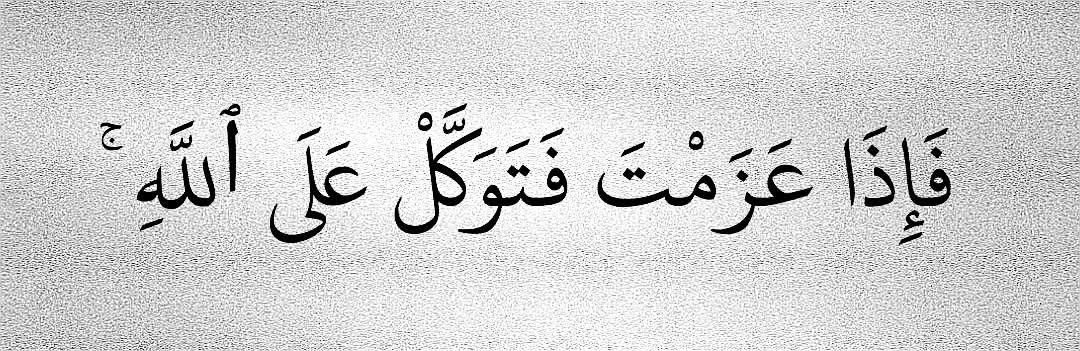 فَإِذَا عَزَمْتَ فَتَوَكَّلْ عَلَى ٱللَّهِ ۚ